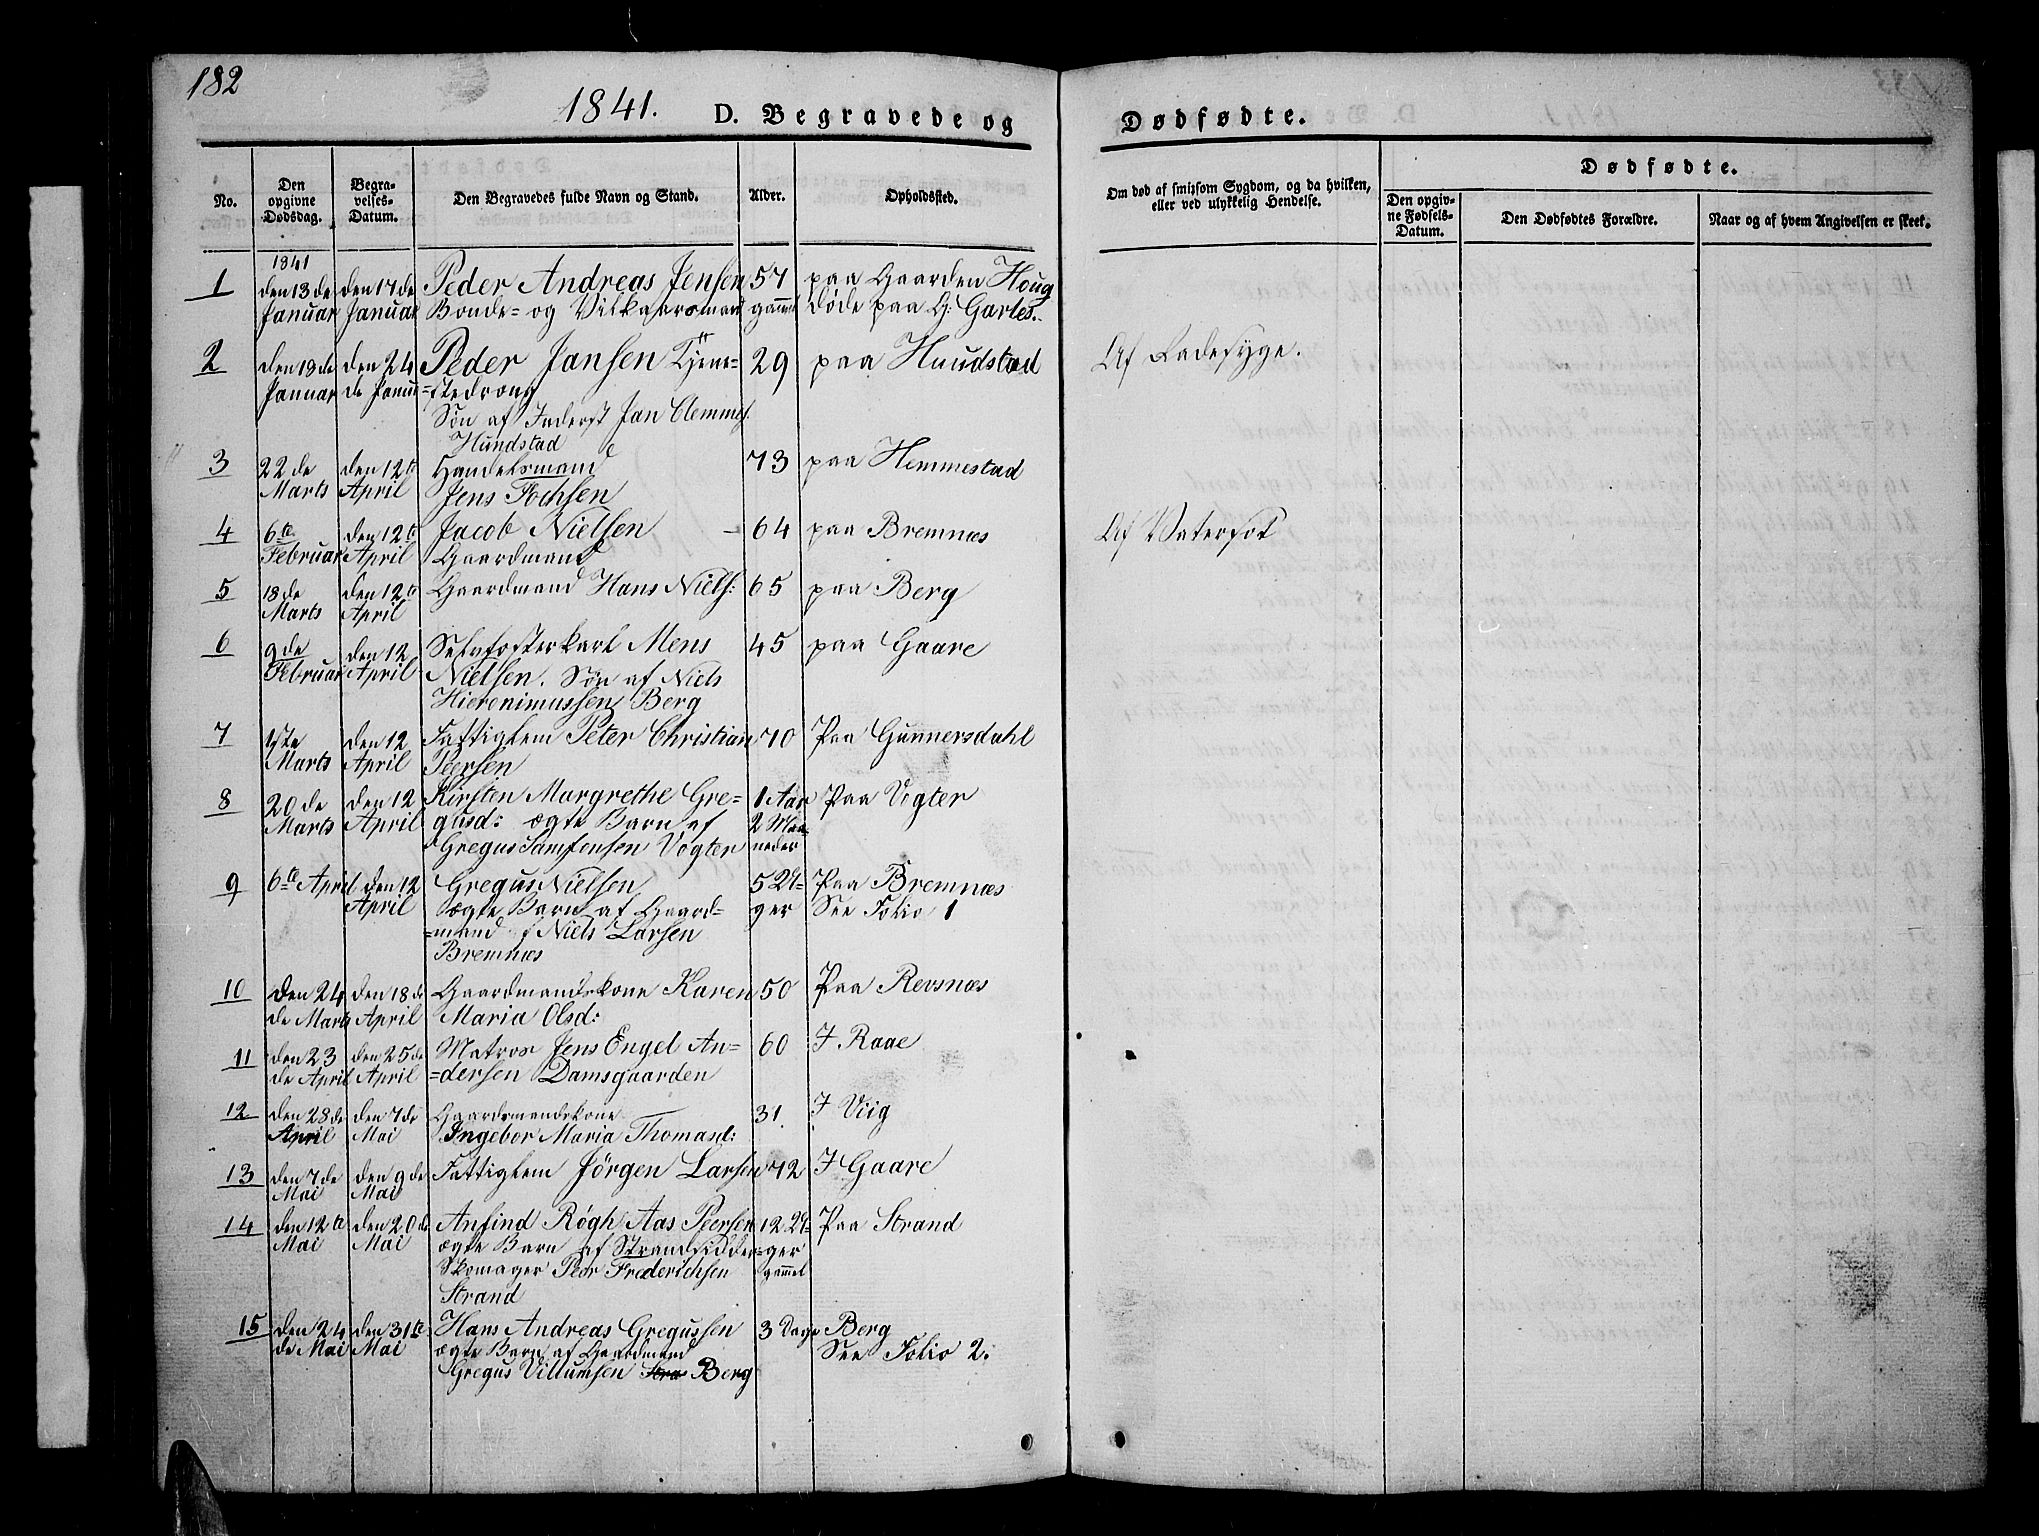 182
1841.
D. Begravede og
Dødfødte.
No.
Den opgivne Dødsdag.
Begravelses-Datum.
Den Begravedes fulde Navn og Stand.
Alder.
Opholdssted.
Om død af smitsom Sygdom, og da hvilken, eller ved ulykkelig Hendelse.
Dødfødte.
Den opgivne Fødsels-Datum.
Den Dødfødtes Forældre.
Naar og af hvem Angivelsen er skeet.
1841
1 den 13de den 17de Peder Andreas Jensen 57 paa Gaarden Houg
Januar Januar Bonde- og Vilkaarsmand gammel døde paa G: Garles.
2 den 19de den 24 Peder Jansen Tjene- 29 paa Huudstad Af Radesyge.
Januar de Januar =stedreng
Søn af Inderst Jan Clemmes.
Hundstad
3 22de den 12te Handelsmand 73 paa Hemmestad
Marts April Jens Fochsen
4 6te den 12te Jacob Nielsen 64 paa Bremnæs Af Vatersot
Februar April Gaardmand
5 18de den 12te Gaardmand Hans Niels: 65 paa Berg
Marts April
6 9de den 12 Selvfosterkarl Mens 45 paa Gaare
Februar April Nielsen. Søn af Niels
Hieronimussen Berg
7 1ste den 12 Fattiglem Peter Christian 70 Paa Gunnersdahl
Marts April Peersen
8 20de den 12 Kirsten Margrethe Gre= 1 Aar Paa Vogter
Marts April gusd: ægte Barn af 2 Maa-
Gregus Samsonsen Vogter neder
9 6te April den 12 Gregus Nielsen 5 Uger Paa Bremnæs
April ægte Barn af Gaard= See Folio 1
=mand Niels Larsen
Bremnæs
10 den 24 den 18de Gaardmandskone Karen 50 Paa Revsnæs
de Marts April Maria Olsd:
11 den 23 den 25de Matros Jens Engel An= 60 I Raae
de April April =dersen Damsgaarden
12 den 28de den 7de Gaardsmandskone 31. I Viig
April Mai Ingebor Maria Thomasd:
13 den 7de den 9de Fattiglem Jörgen Larsen 72 I Gaare
Mai Mai
14 den 12te den 20de Anfind Røgh Aas Peersen 12 U= Paa Strand
Mai Mai ægte Barn af Strandsidder =ger
Skomager Peer Frederichsen gammel
Strand
15 den 24 den 31te Hans Andreas Gregussen 3 Dage Berg
de Mai Mai ægte Barn af Gaardmand See Folio 2.
Gregus Villumsen Berg